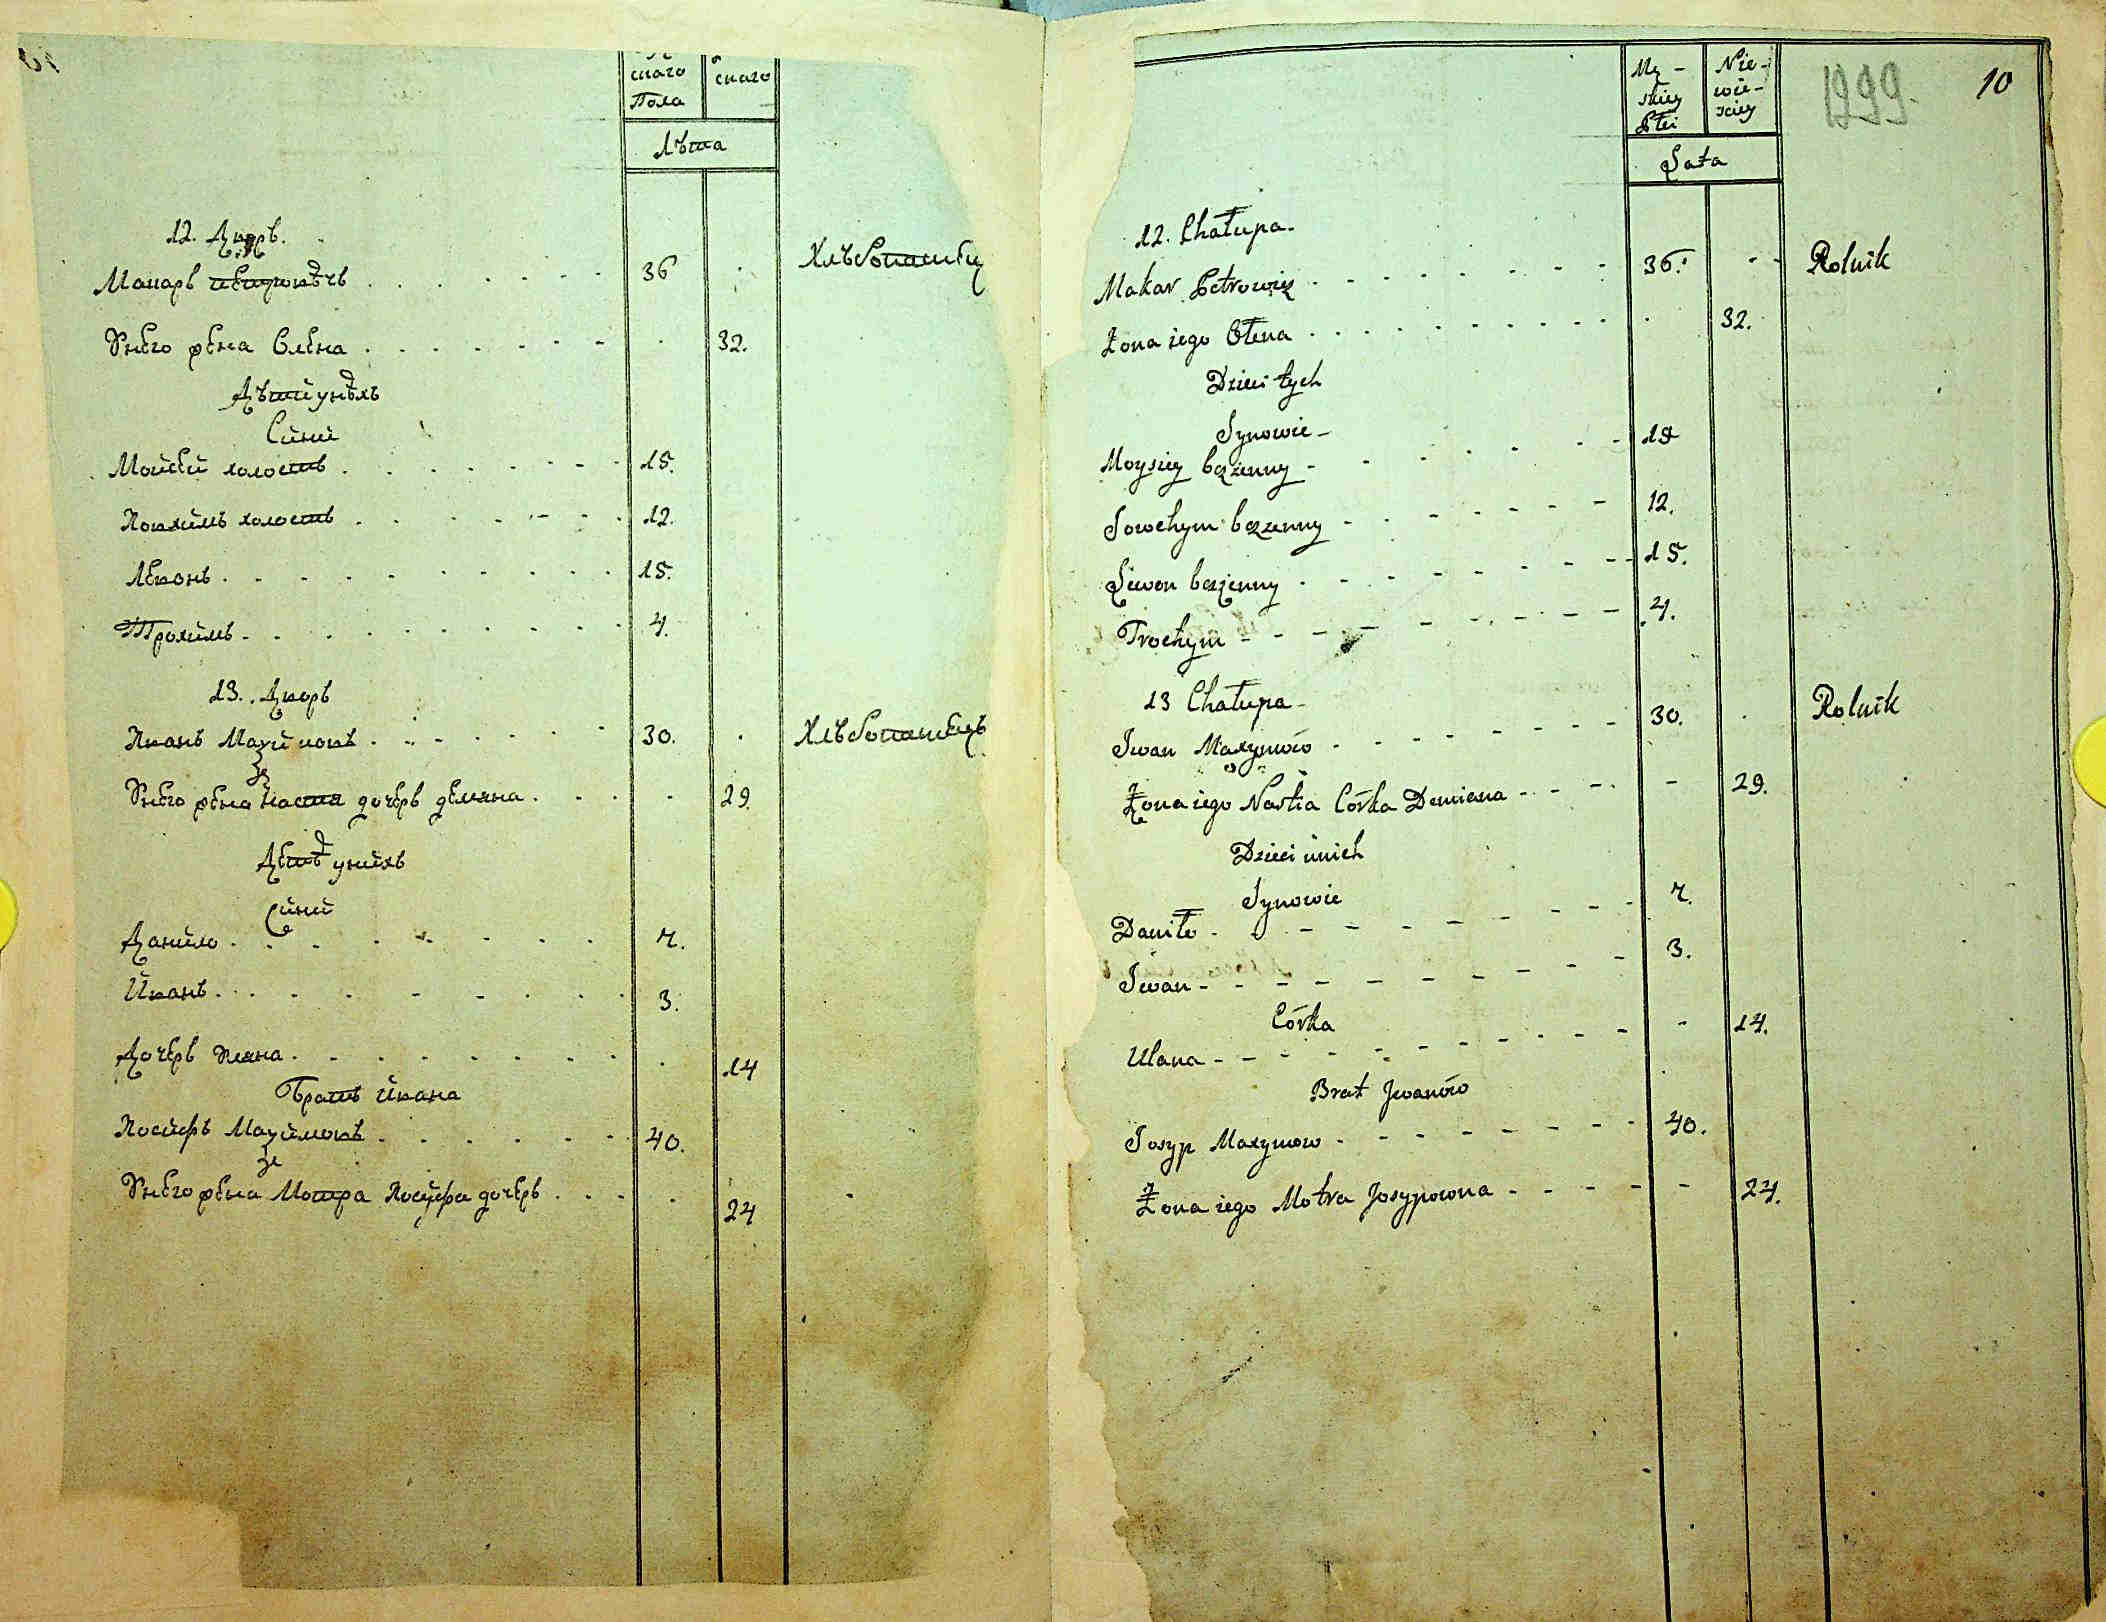 скаго скаго
Пола
Лѣта
12. Дворъ.
Макаръ Петровичъ 36 Хлѣбопашец
Унего жена Олена 32.
Дѣти унихъ
Сини
Мойсей холостъ 15.
Йовхимъ холостъ 12.
Левонъ 15.
Трохимъ 4.
13. Дворъ
Иванъ Максимовъ 30. Хлѣбопашецъ
Унего жена Настя дочерь Демяна 29.
Дети унихъ
Сини
Данило 7.
Иванъ 3.
Дочерь Уляна 14
Братъ Ивана
Йосифъ Максимовъ 40.
Унего жена Мотра Йосифа дочерь 24
Mę- Nie- 1999. 10
skiey wie-
Płci sciey
Lata
12. Chałupa
Makar Petrowicz 36. Rolnik
Żona iego Ołena 32.
Dzieci tych
Synowie
Moysiey bezżenny 15
Jowchym bezżenny 12.
Liwon bezżenny 15.
Trochym 4.
13 Chałupa
Iwan Maxymów 30. Rolnik
Żona iego Nastia Córka Demiana 29.
Dzieci ú nich
Synowie
Daniło 7.
Iwan 3.
Córka
Ulana 14.
Brat Jwanów
Josyp Maxymow 40.
Żona iego Motra Josypowna 24.